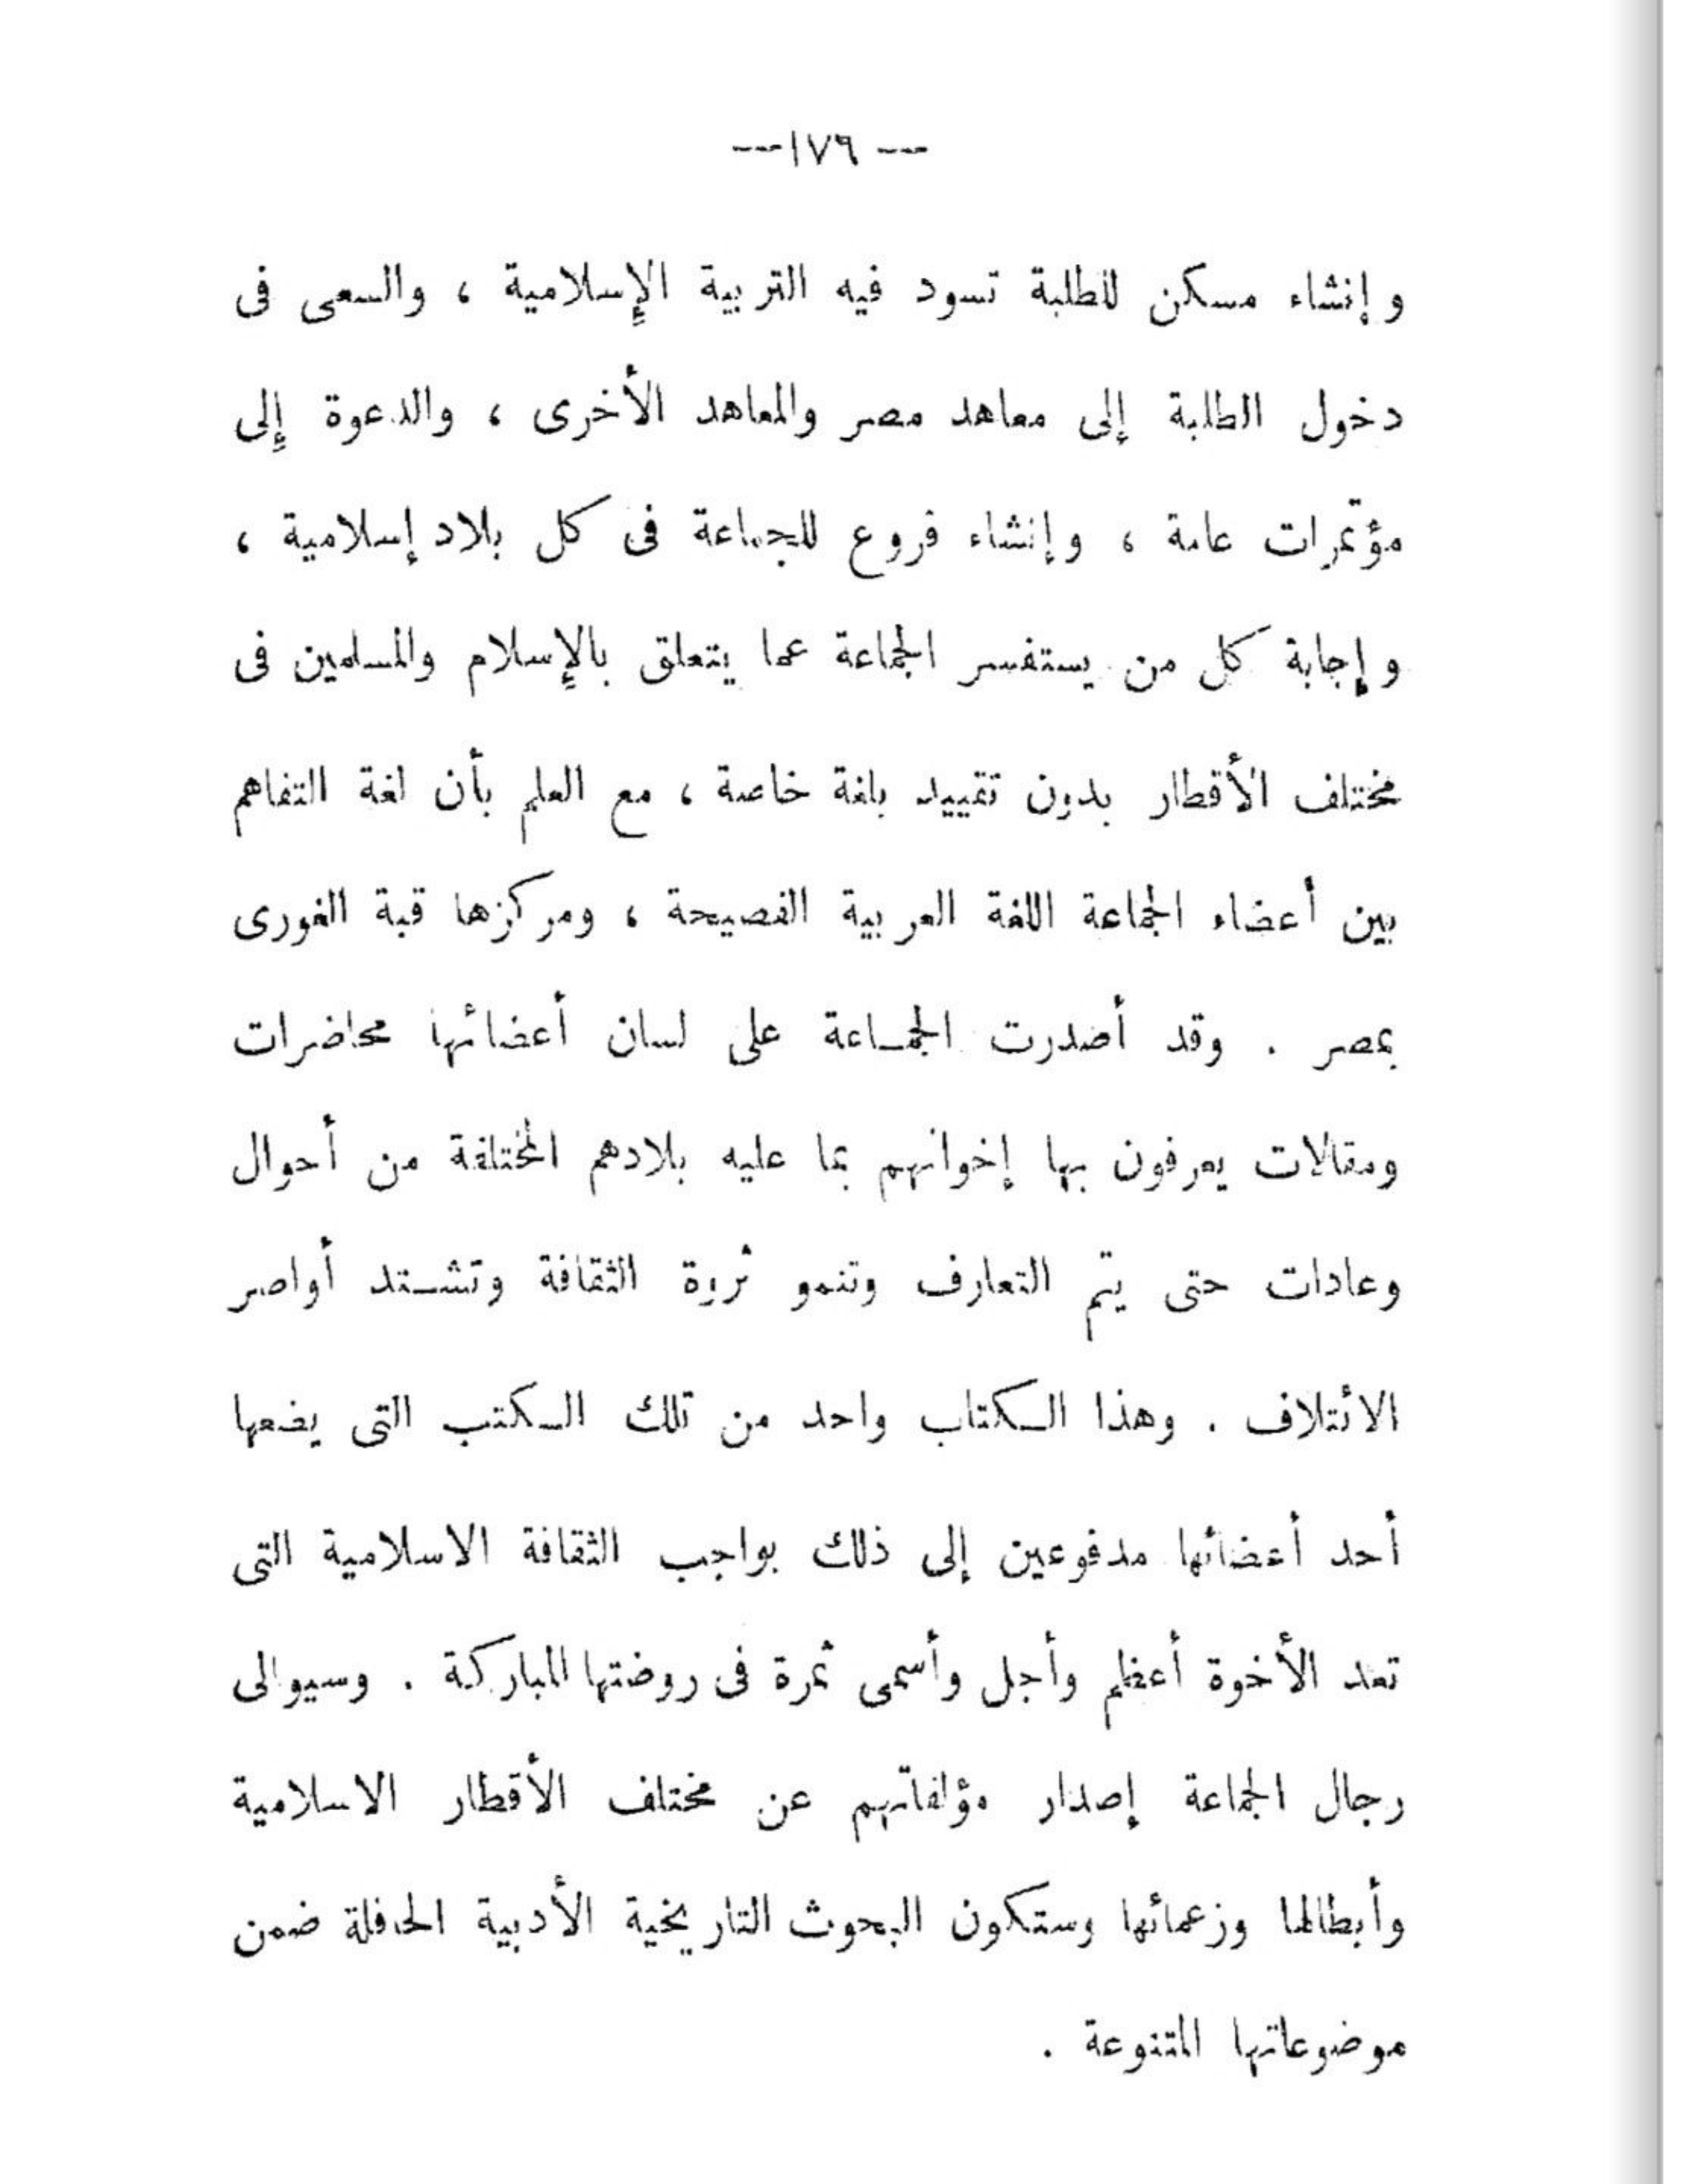 -- ١٧٦ --
وإنشاء مسكن للطلبة تسود فيه التربية الإسلامية ، والسعى فى
دخول الطلبة إلى معاهد مصر والمعاهد الأخرى ، والدعوة إلى
مؤتمرات عامة ، وإنشاء فروع للجماعة فى كل بلاد إسلامية ،
وإجابة كل من يستفسر الجماعة عما يتعلق بالإسلام والمسلمين فى
مختلف الأقطار بدون تقييد بلغة خاصة ، مع العلم بأن لغة التفاهم
بين أعضاء الجماعة اللغة العربية الفصيحة ، ومركزها قبة الغورى
بمصر . وقد أصدرت الجماعة على لسان أعضائها محاضرات
ومقالات يعرفون بها إخوانهم بما عليه بلادهم المختلفة من أحوال
وعادات حتى يتم التعارف وتنمو ثروة الثقافة وتشتد أواصر
الائتلاف . وهذا الكتاب واحد من تلك الكتب التى يضعها
أحد أعضائها مدفوعين إلى ذلك بواجب الثقافة الاسلامية التى
تعد الأخوة أعظم وأجل وأسمى ثمرة فى روضتها المباركة . وسيوالى
رجال الجماعة إصدار مؤلفاتهم عن مختلف الأقطار الاسلامية
وأبطالها وزعمائها وستكون البحوث التاريخية الأدبية الحافلة ضمن
موضوعاتها المتنوعة .